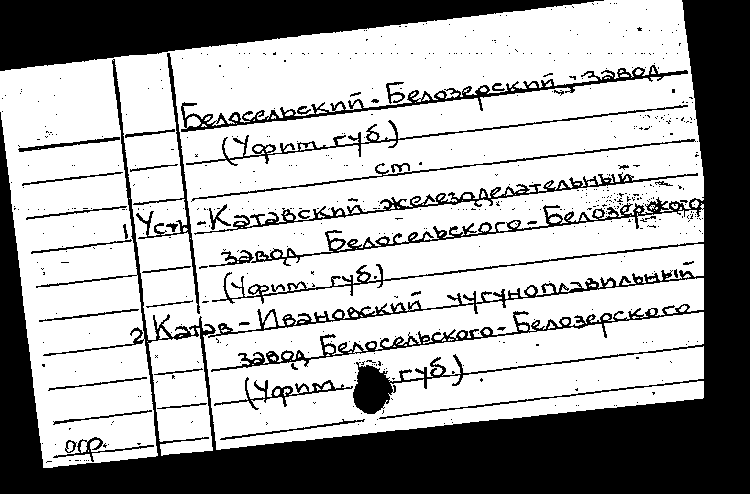 Белосельский-Белозерский, завод
(Уфим. губ.)
ст.
1. Усть-Катавский железоделательный
завод Белосельского-Белозерского
(Уфим. губ.)
2. Катав-Ивановский чугуноплавильный
завод Белосельского-Белозерского
(Уфим. губ.)